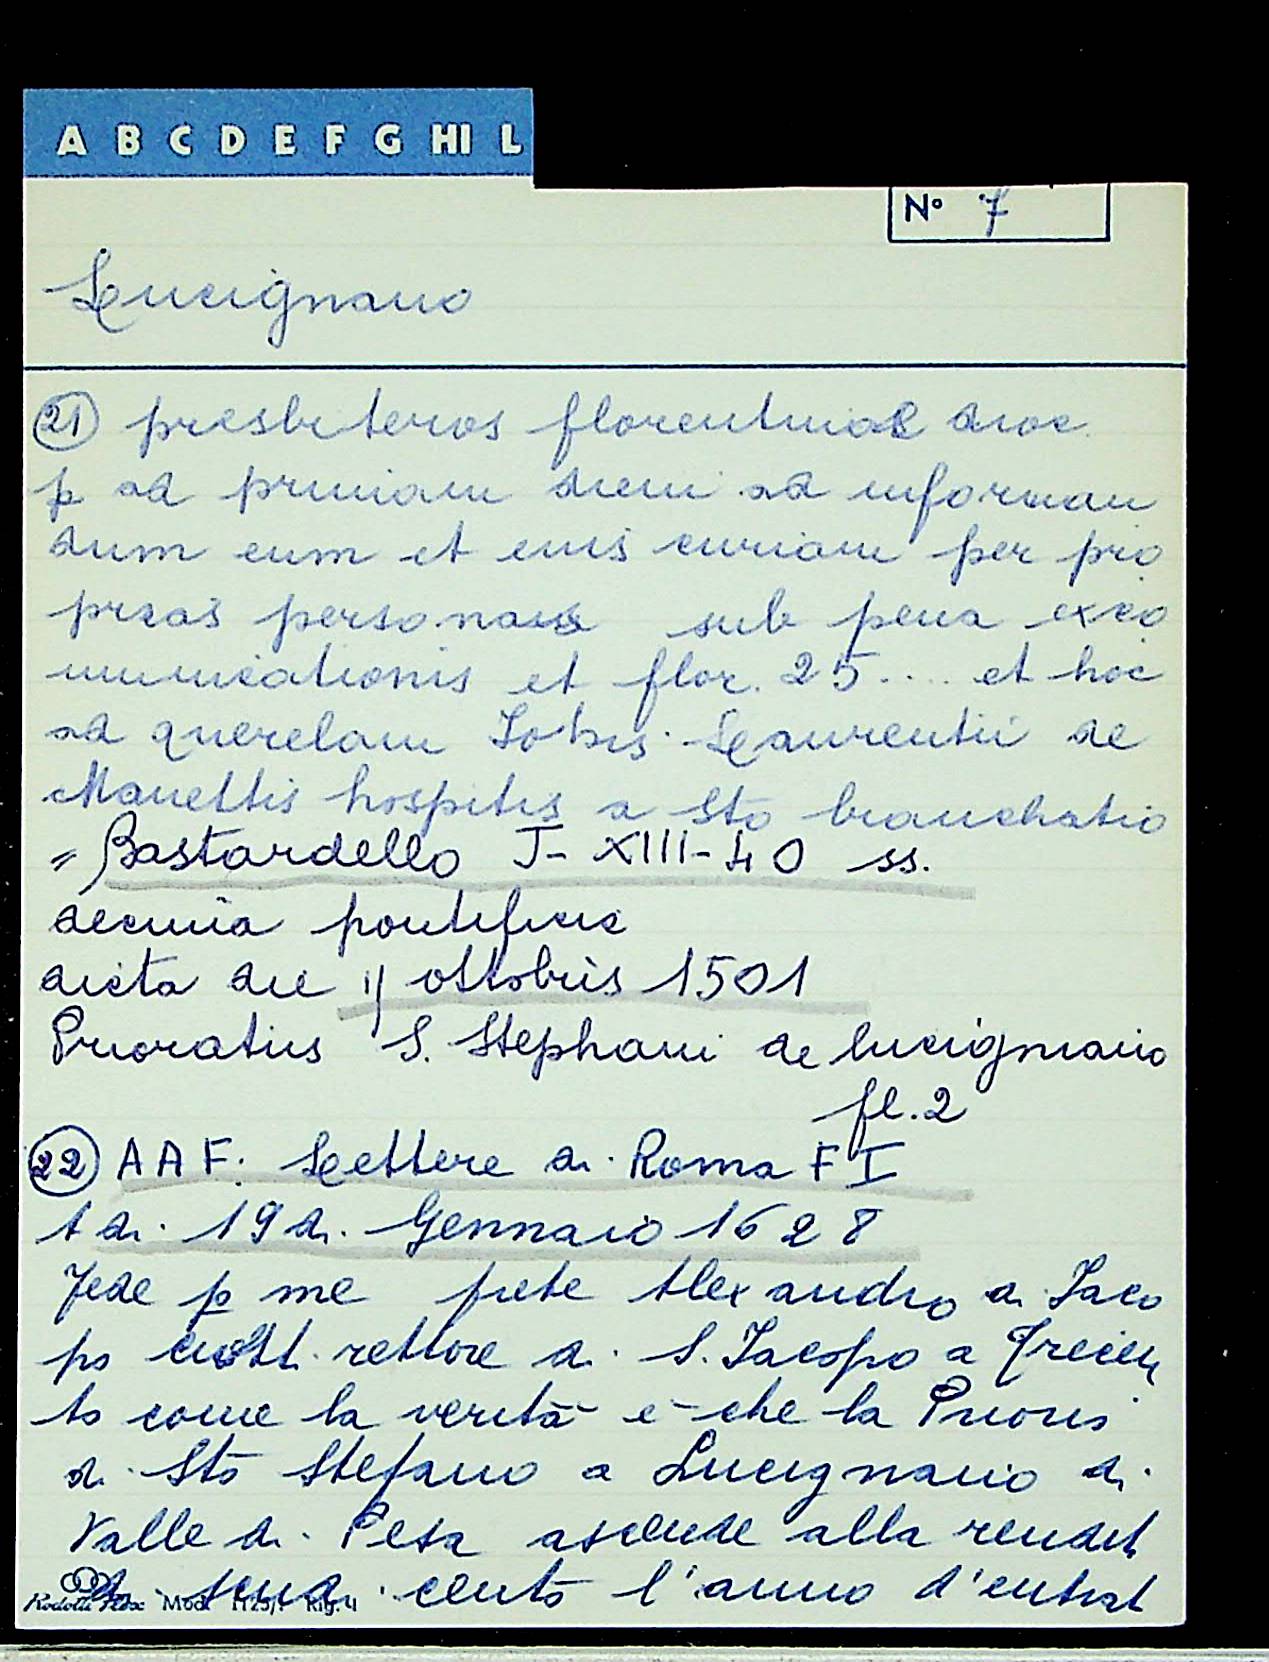 A B C D E F G HI L
N° 7
Lucignano
21 presbiteros florentinae dioc.
p ad primam diem ad informan
dum eum et eius curiam per pro
prias personas sub pena exco
municationis et flor. 25.... et hoc
ad querelam Johis. Laurentii de
Manettis hospitis a Sto branchatio
= Bastardello J- XIII-40 ss.
decima pontificis
dicta die 11 ottobris 1501
Prioratus S. Stephani de lucignano
fl.2
22 AAF. Lettere di Roma F I
A di 19 di Gennaio 1628
Fede p me prete Alexandro di Iaco
po rettore di S. Iacopo a
to come la verità è che la Prioris
di Sto Stefano a Lucignano di
Valle di Pesa ascende alla rendit
di scudi cento l'anno d'entrat
Mod. Rig. 4